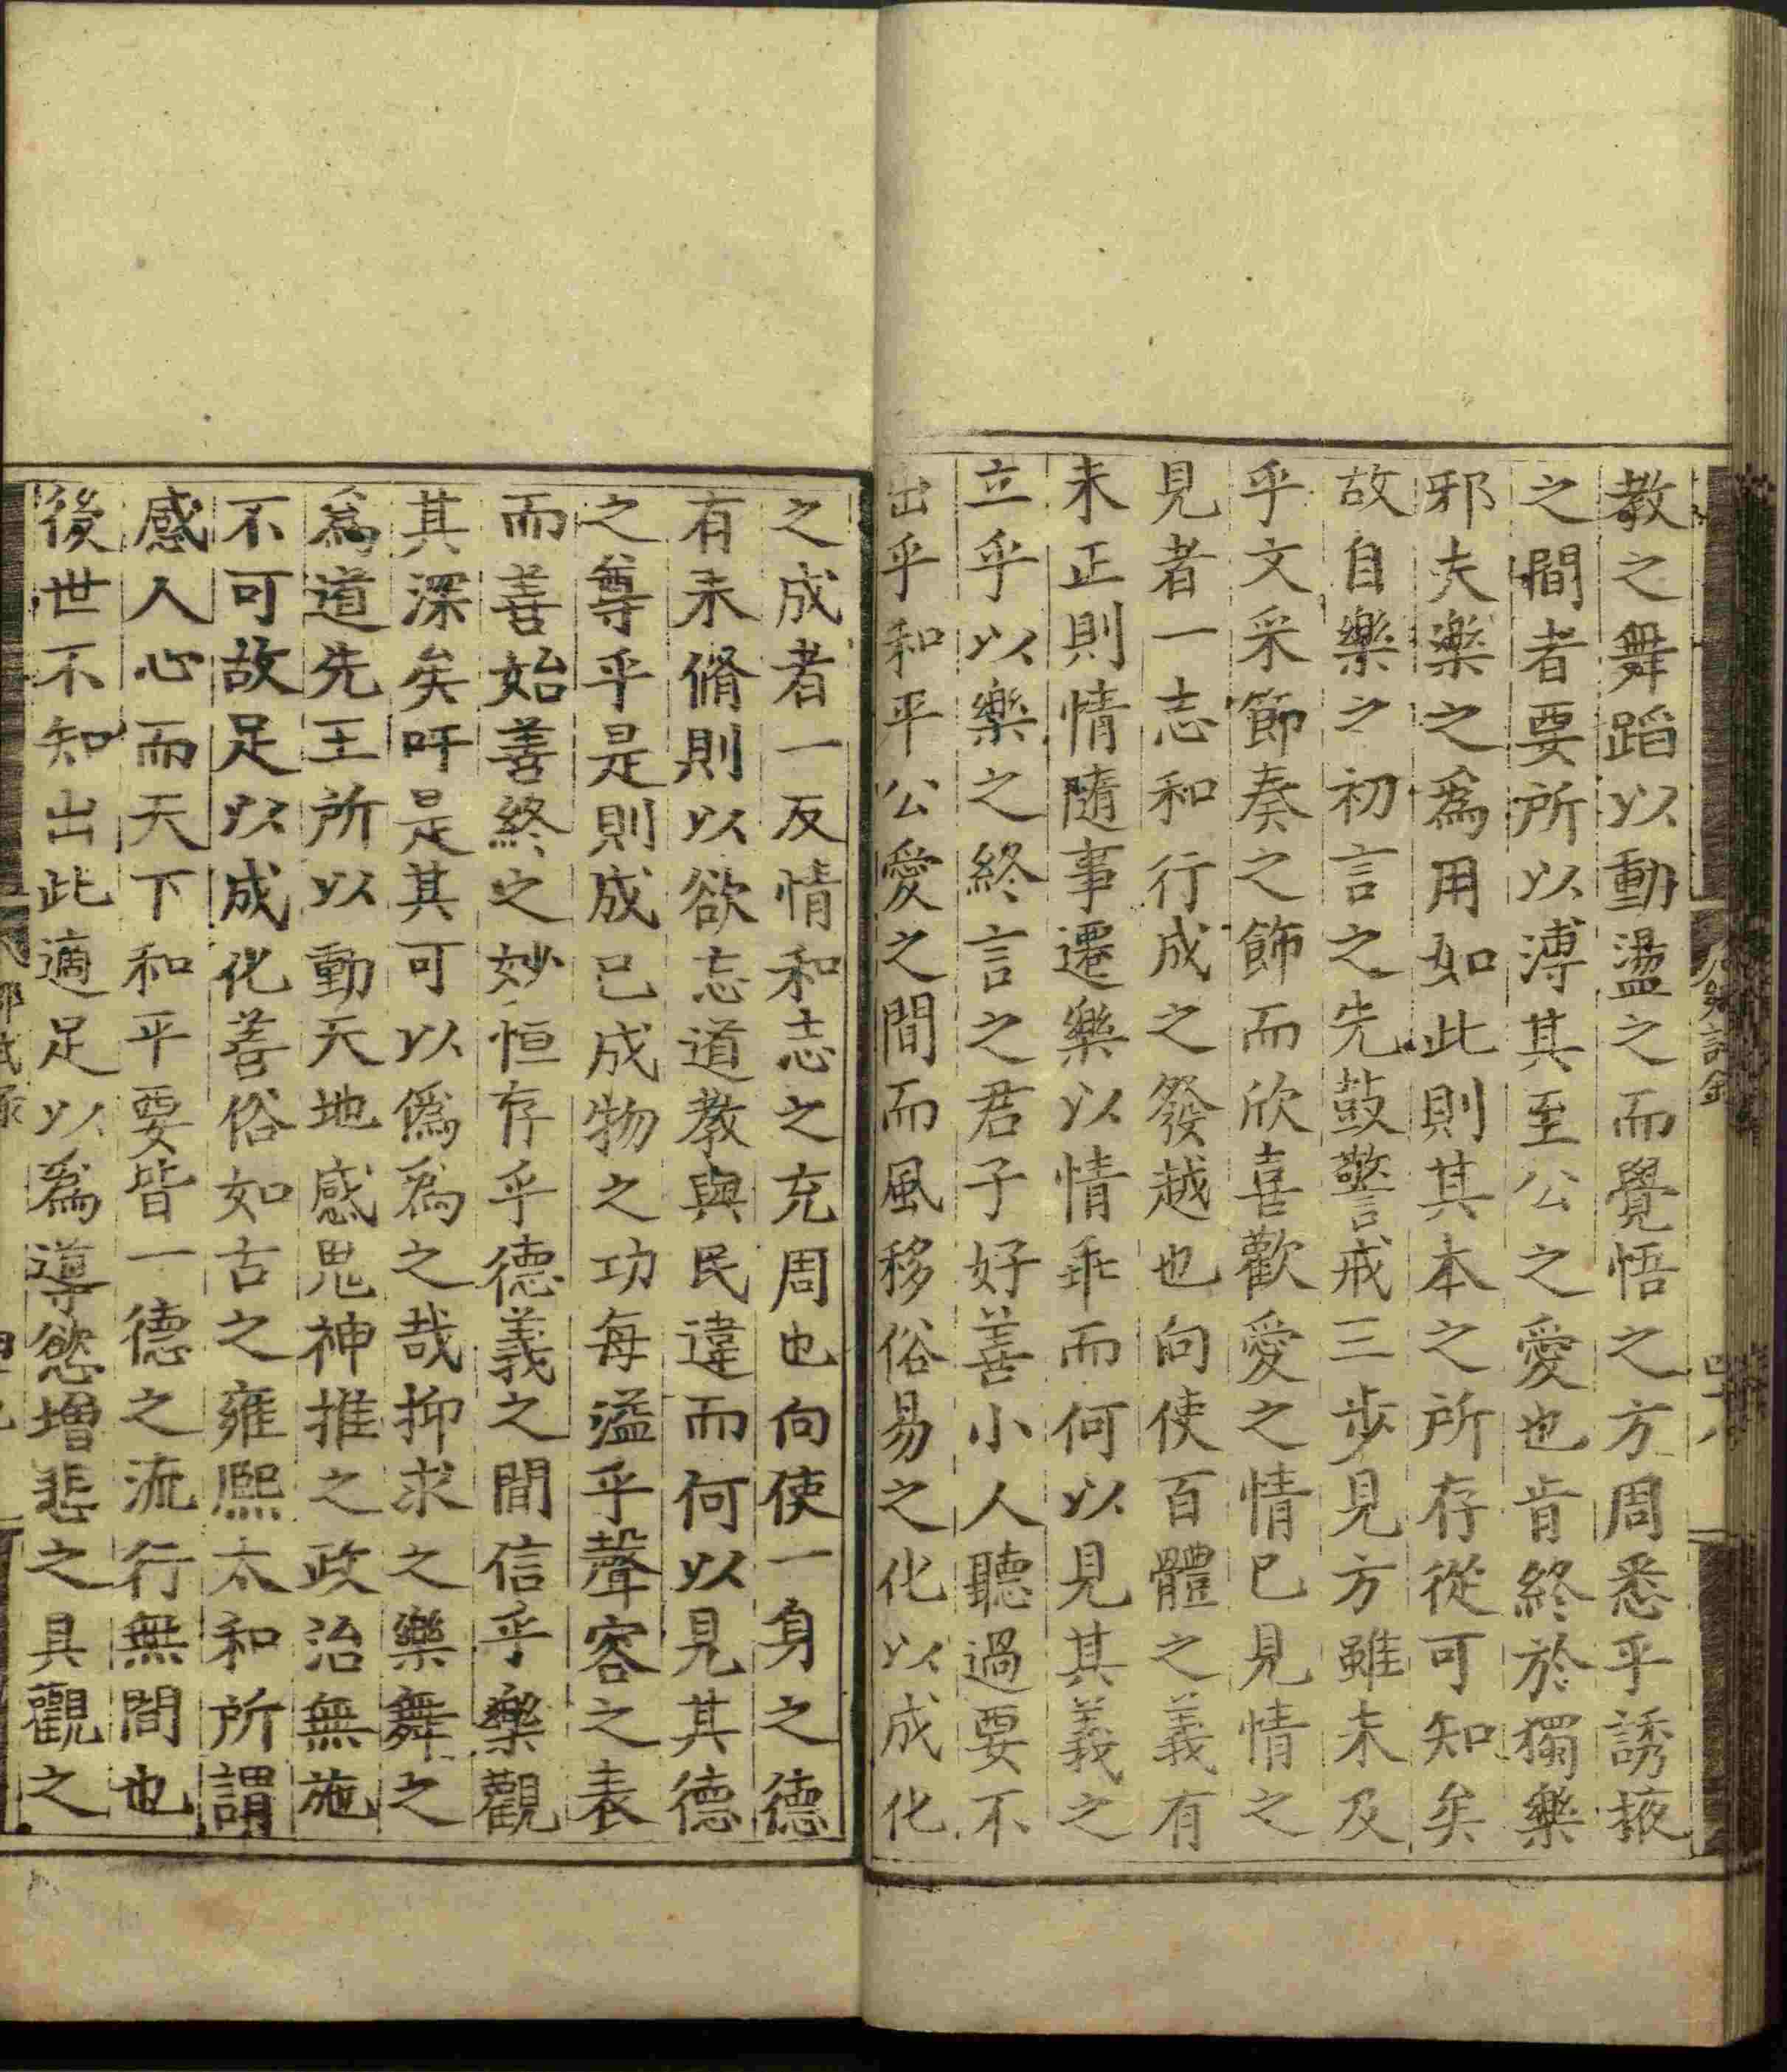 教之舞蹈以動盪之而覺悟之方周悉乎誘掖
之間者要所以溥其至公之愛也肯終於獨樂
邪夫樂之爲用如此則其本之所存從可知矣
故自樂之初言之先鼓警戒三步見方雖未及
乎文采節奏之飾而欣喜歡愛之情已見情之
見者一志和行成之發越也向使百體之義有
未正則情隨事遷樂以情乖而何以見其義之
立乎以樂之終言之君子好善小人聽過要不
出乎和平公愛之間而風移俗易之化以成化
之成者一反情和志之充周也向使一身之德
有未脩則以欲忘道教與民違而何以見其德
之尊乎是則成已成物之功每溢乎聲容之表
而善始善終之妙恒存乎德義之間信乎樂觀
其深矣吁是其可以僞爲之哉抑求之樂舞之
爲道先王所以動天地感鬼神推之政治無施
不可故足以成化善俗如古之雍熙太和所謂
感人心而天下和平要皆一德之流行無間也
後世不知出此適足以爲導慾增悲之具觀之